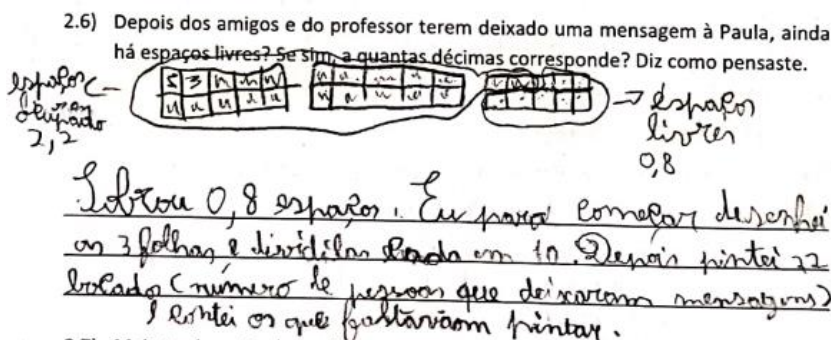 2.6) Depois dos amigos e do professor terem deixado uma mensagem à Paula, ainda
há espaços livres? Se sim, a quantas décimas corresponde? Diz como pensaste.
espaços
ocupado
2,2
espaços
livres
0,8
Sobrou 0,8 espaços. Eu para começar desenhei
as 3 folhas e dividilas cada em 10. Depois pintei 22
bocados (número de pessoas que deixaram mensagens)
e contei os que faltavam pintar.